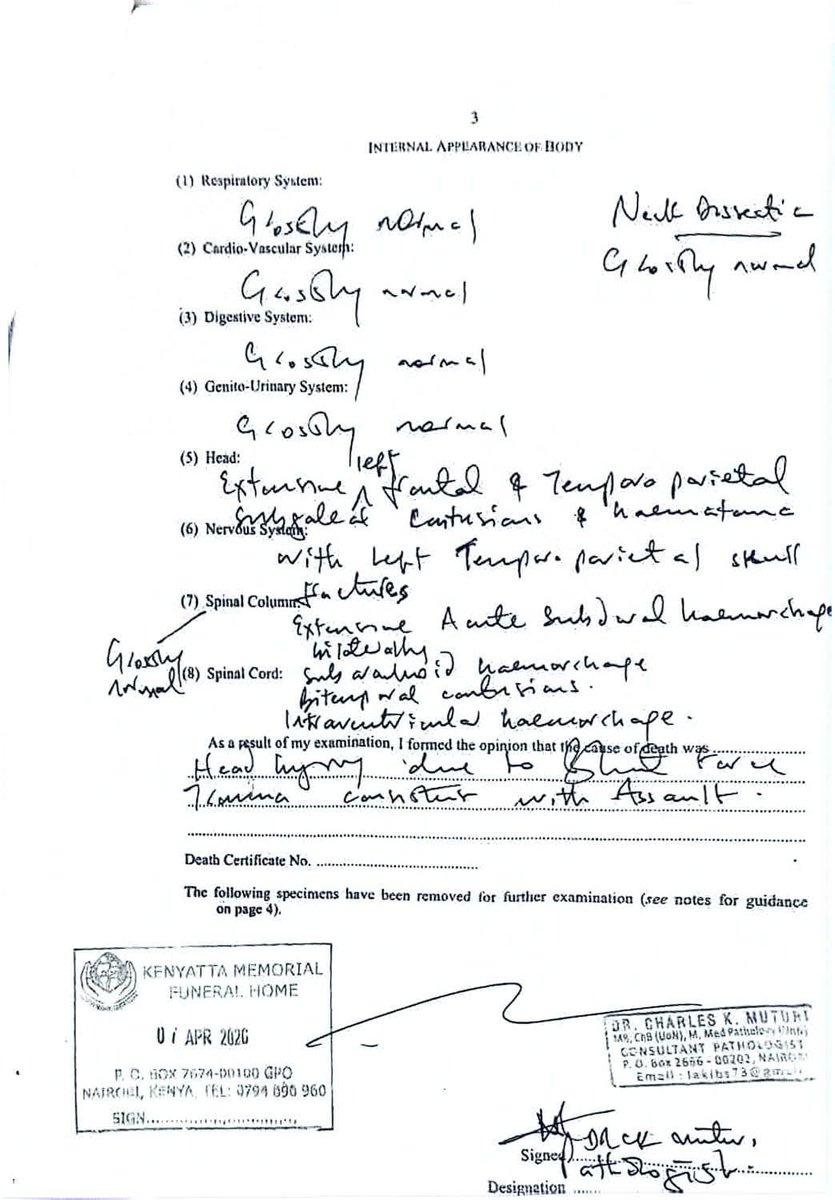 3
INTERNAL APPEARANCE OF BODY
(1) Respiratory System:
Grossly normal
Neck Dissection
Grossly normal
(2) Cardio-Vascular System:
Grossly normal
(3) Digestive System:
Grossly normal
(4) Genito-Urinary System:
Grossly normal
(5) Head:
Extensive left frontal & Temporo parietal
subgaleal contusions & haematoma
(6) Nervous System:
with Left Temporo-parietal skull
fractures
(7) Spinal Column:
Grossly normal
Extensive Acute Subdural haemorrhage
bilaterally
(8) Spinal Cord:
Subarachnoid haemorrhage
Bitemporal contusions.
Intraventricular haemorrhage.
As a result of my examination, I formed the opinion that the cause of death was
Head Injury due to Blunt Force
Trauma consistent with Assault.
Death Certificate No.
The following specimens have been removed for further examination (see notes for guidance
on page 4).
KENYATTA MEMORIAL
FUNERAL HOME
APR
P. O. BOX 7674-00100 GPO
NAIROBI, KENYA, TEL: 0794 890 960
SIGN
DR. CHARLES K. MUTURI
MB, ChB (UoN), M, Med Pathology
CONSULTANT PATHOLOGIST
P. O. Box 2666 - 00202, NAIROBI
Email:
Signed DR CK Muturi,
Pathologist.
Designation